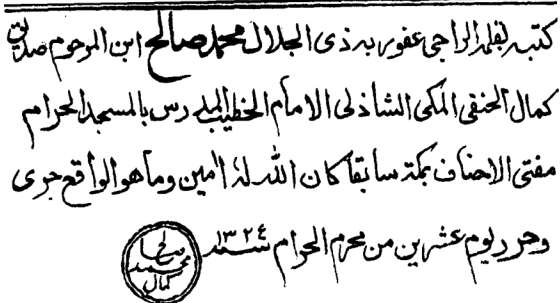 كتبه بقلمه الراجي عفو ربه ذي الجلال محمد صالح ابن المرحوم صديق
كمال الحنفي المكي الشاذلي الامام الخطيب المدرس بالمسجد الحرام
مفتي الاحناف بمكة سابقا كان الله له امين وما هو الواقع جرى
وحرر يوم عشرين من محرم الحرام سنة ١٣٢٤
صالح
محمد
كمال